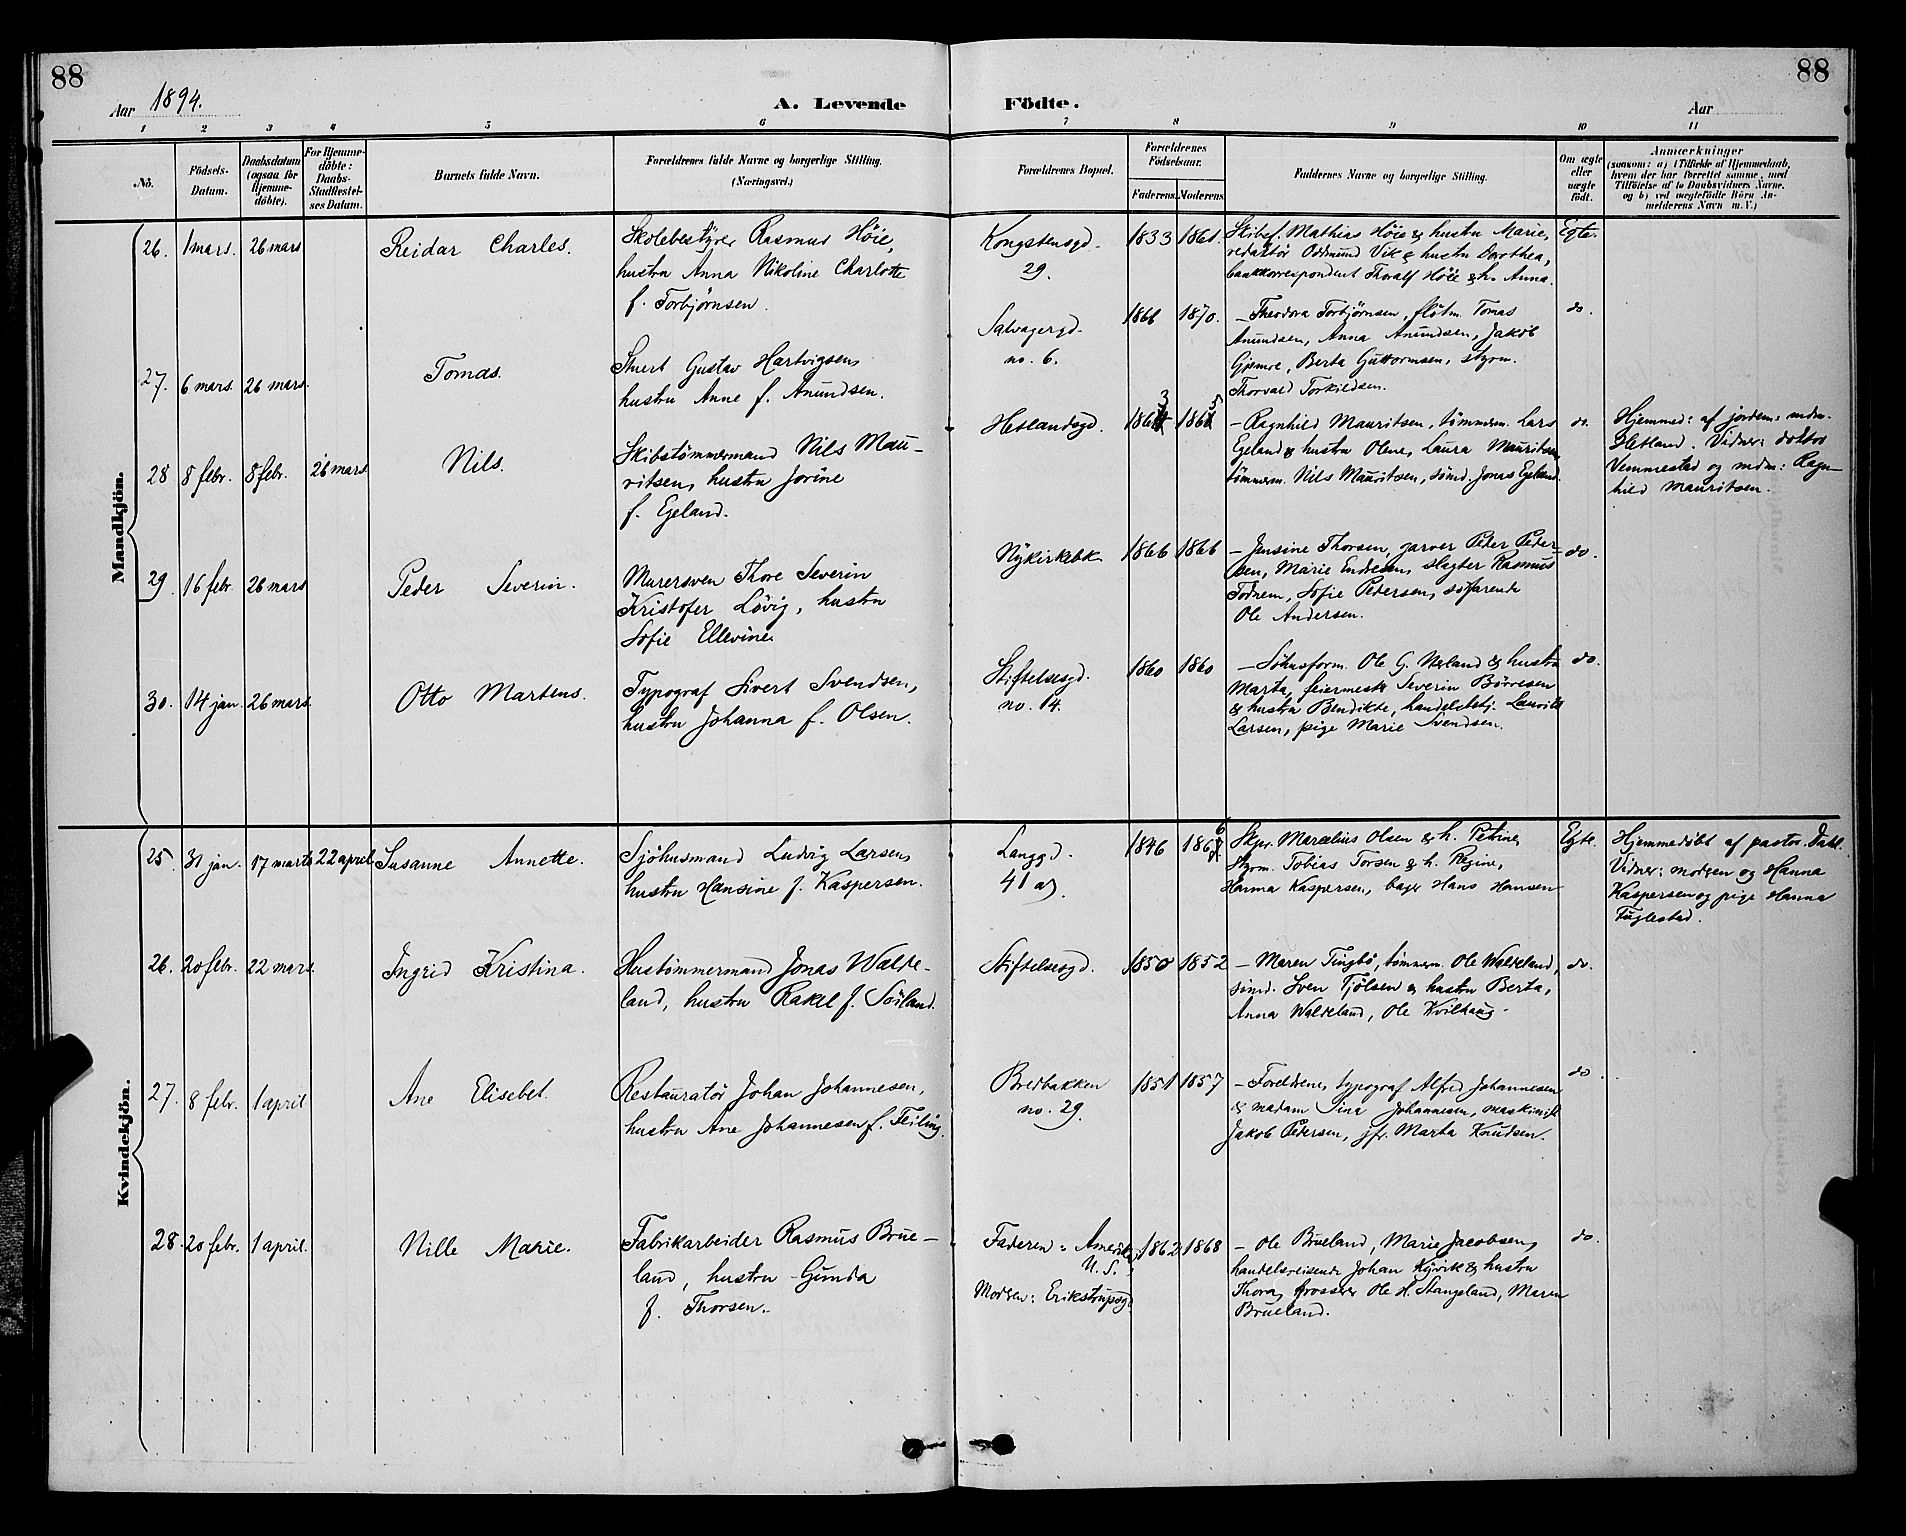 88
88
Aar 1894.
A. Levende Födte.
Aar
1 2 3 4 5 6 7 8 9 10 11
No.
Födsels-
Datum.
Daabsdatum
(ogsaa for
Hjemme-
döbte).
For Hjemme-
döbte:
Daabs-
Stadfestel-
ses Datum.
Barnets fulde Navn.
Forældrenes fulde Navne og borgerlige Stilling.
(Næringsvei.)
Forældrenes Bopæl.
Forældrenes
Födselsaar.
Faderens. Moderens.
Faddernes Navne og borgerlige Stilling.
Om ægte
eller
uægte
födt.
Anmærkninger
(saasom: a) i Tilfælde af Hjemmedaab,
hvem der har forrettet samme, med
Tilföielse af to Daabsvidners Navne,
og b) ved uægtefödte Börn An-
melderens Navn m. V.)
Mandkjön.
26. 1 mars. 26 mars Reidar Charles.
Skolebestyrer Rasmus Höie,
hustru Anna Nikoline Charlotte
f. Torbjörnsen.
Kongstensgd.
29.
1833 1861.
Skibsf. Mathias Höie & hustru Marie,
redaktör Oddmund Vik & hustru Dorothea,
bankkorrespondent Thoralf Höie & h. Anna.
Egte.
27. 6 mars. 26 mars. Tomas.
Stuert Gustav Hartvigsen,
hustru Anne f. Anundsen.
Salvagergd.
no. 6.
1866 1870.
– Theodora Torbjörnsen, flötm. Tomas
Anundsen, Anna Anundsen, Jakob
Gjemre, Berta Guttormsen, styrm.
Thorvald Torkildsen.
do.
28 8 febr. 8 febr. 26 mars. Nils.
Skibstömmermand Nils Mau-
ritsen, hustru Jorine
f. Egeland.
Hetlandsgd.
1863 1865
– Ragnhild Mauritsen, tömmerm. Lars
Egeland & hustru Olene, Laura Mauritsen,
tömmerm. Nils Mauritsen, sömd. Jonas Egeland.
do.
Hjemmed: af jordem: mdm.
Hetland. Vidner: doktor
Vemmestad og mdm: Ragn-
hild Mauritsen.
29. 16 febr. 26 mars Peder Severin.
Murersven Thore Severin
Kristofer Lövig, hustru
Sofie Ellevine
Nykirkebk.
1866 1866
– Jensine Thorsen, garver Peter Peder-
sen, Marie Endresen, slagter Rasmus
Todnem, Sofie Pedersen, söfarende
Ole Andersen.
do.
30. 14 jan. 26 mars. Otto Martens.
Typograf Sivert Svendsen,
hustru Johanna f. Olsen.
Stiftelsesgd.
no. 14.
1860 1860
– Söhusform. Ole G. Meland & hustru
Marta, feiermestr. Severin Börresen
& hustru Bendikte, handelsbetj. Lauritz
Larsen, pige Marie Svendsen.
do.
Kvindekjön.
25. 31 jan. 17 marts 22 april. Susanne Annette.
Sjöhusmand Ludvig Larsen,
hustru Hansine f. Kaspersen.
Langgd.
41 a.
1846 1866
Skpr. Marcelius Olsen & h. Petrine,
styrm. Tobias Torsen & h. Regine,
Hanna Kaspersen, bager Hans Hansen
Egte.
Hjemmedöbt af pastor Dahl.
Vidner: modren og Hanna
Kaspersen og pige Hanna
Fuglestad.
26. 20 febr. 22 mars. Ingrid Kristina.
Hustömmermand Jonas Walde-
land, hustru Rakel f. Söiland.
Stiftelsesgd.
1850 1852
– Maren Tingbö, tömmerm. Ole Waldeland,
sömd. Sven Tjölsen & hustru Berta,
Anna Waldeland, Ole Kvilhaug.
do.
27. 8 febr. 1 april Ane Elisebet.
Restauratör Johan Johannesen,
hustru Ane Johannesen f. Feiling.
Bredbakken
no. 29.
1851 1857
– Foreldrene, typograf Alfred Johannesen
& madam Sina Johannesen, maskinist
Jakob Pedersen, jfr. Marta Knudsen.
do.
28. 20 febr. 1 april. Nille Marie.
Fabrikarbeider Rasmus Brue-
land, hustru Gunda
f. Thorsen.
Faderen: Amerika
U. S.
Modren: Erikstrupsgd.
1862 1868
– Ole Brueland, Marie Jacobsen,
handelsreisende Johan Kjörvik & hustru
Thora, grosserer Ole H. Stangeland, Maren
Brueland.
do.